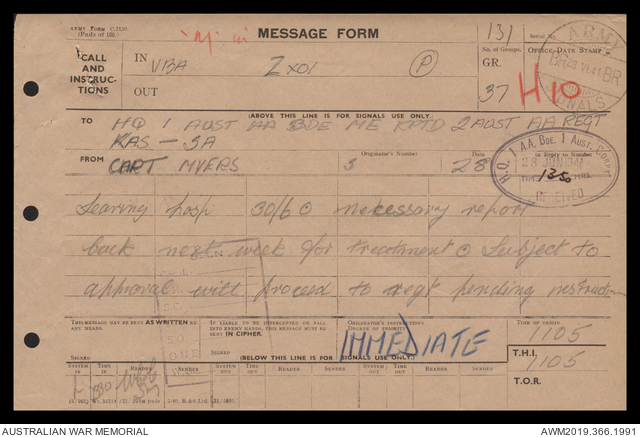 ARMY FORM C.2130.
(Pads of 100.)
"M" in
MESSAGE FORM
131
Serial No.
CALL AND INSTRUCTIONS
IN
VBA
ZXO1
P
No. of Groups.
GR.
37
OFFICE DATE STAMP
ARMY
BR
VI 41
BR
SIGNALS
H10
OUT
(ABOVE THIS LINE IS FOR SIGNALS USE ONLY.)
TO
HQ 1 AUST AA BDE ME RPTD 2 AUST AA REGT
KAS - SA
FROM
CAPT MYERS
Originator's Number
3
Date
28
In Reply to Number
H.Q. 1 A.A. BDE. 1 AUST. CORPS
28 JUN 1941
TIME 1350 HRS.
RECEIVED
Leaving hosp 30/6 necessary report
back next week for treatment Subject to
approval will proceed to regt pending instruction
THIS MESSAGE MAY BE SENT AS WRITTEN BY ANY MEANS.
IF LIABLE TO BE INTERCEPTED OR FALL INTO ENEMY HANDS, THIS MESSAGE MUST BE SENT IN CIPHER.
ORIGINATOR'S INSTRUCTIONS
DEGREE OF PRIORITY
IMMEDIATE
TIME OF ORIGIN
1105
SIGNED
SIGNED
(BELOW THIS LINE IS FOR SIGNALS USE ONLY.)
T.H.I.
1105
SYSTEM IN
TIME IN
READER
SENDER
SYSTEM OUT
TIME OUT
READER
SENDER
SYSTEM OUT
TIME OUT
READER
SENDER
T.O.R.
AUSTRALIAN WAR MEMORIAL
AWM2019.366.1991